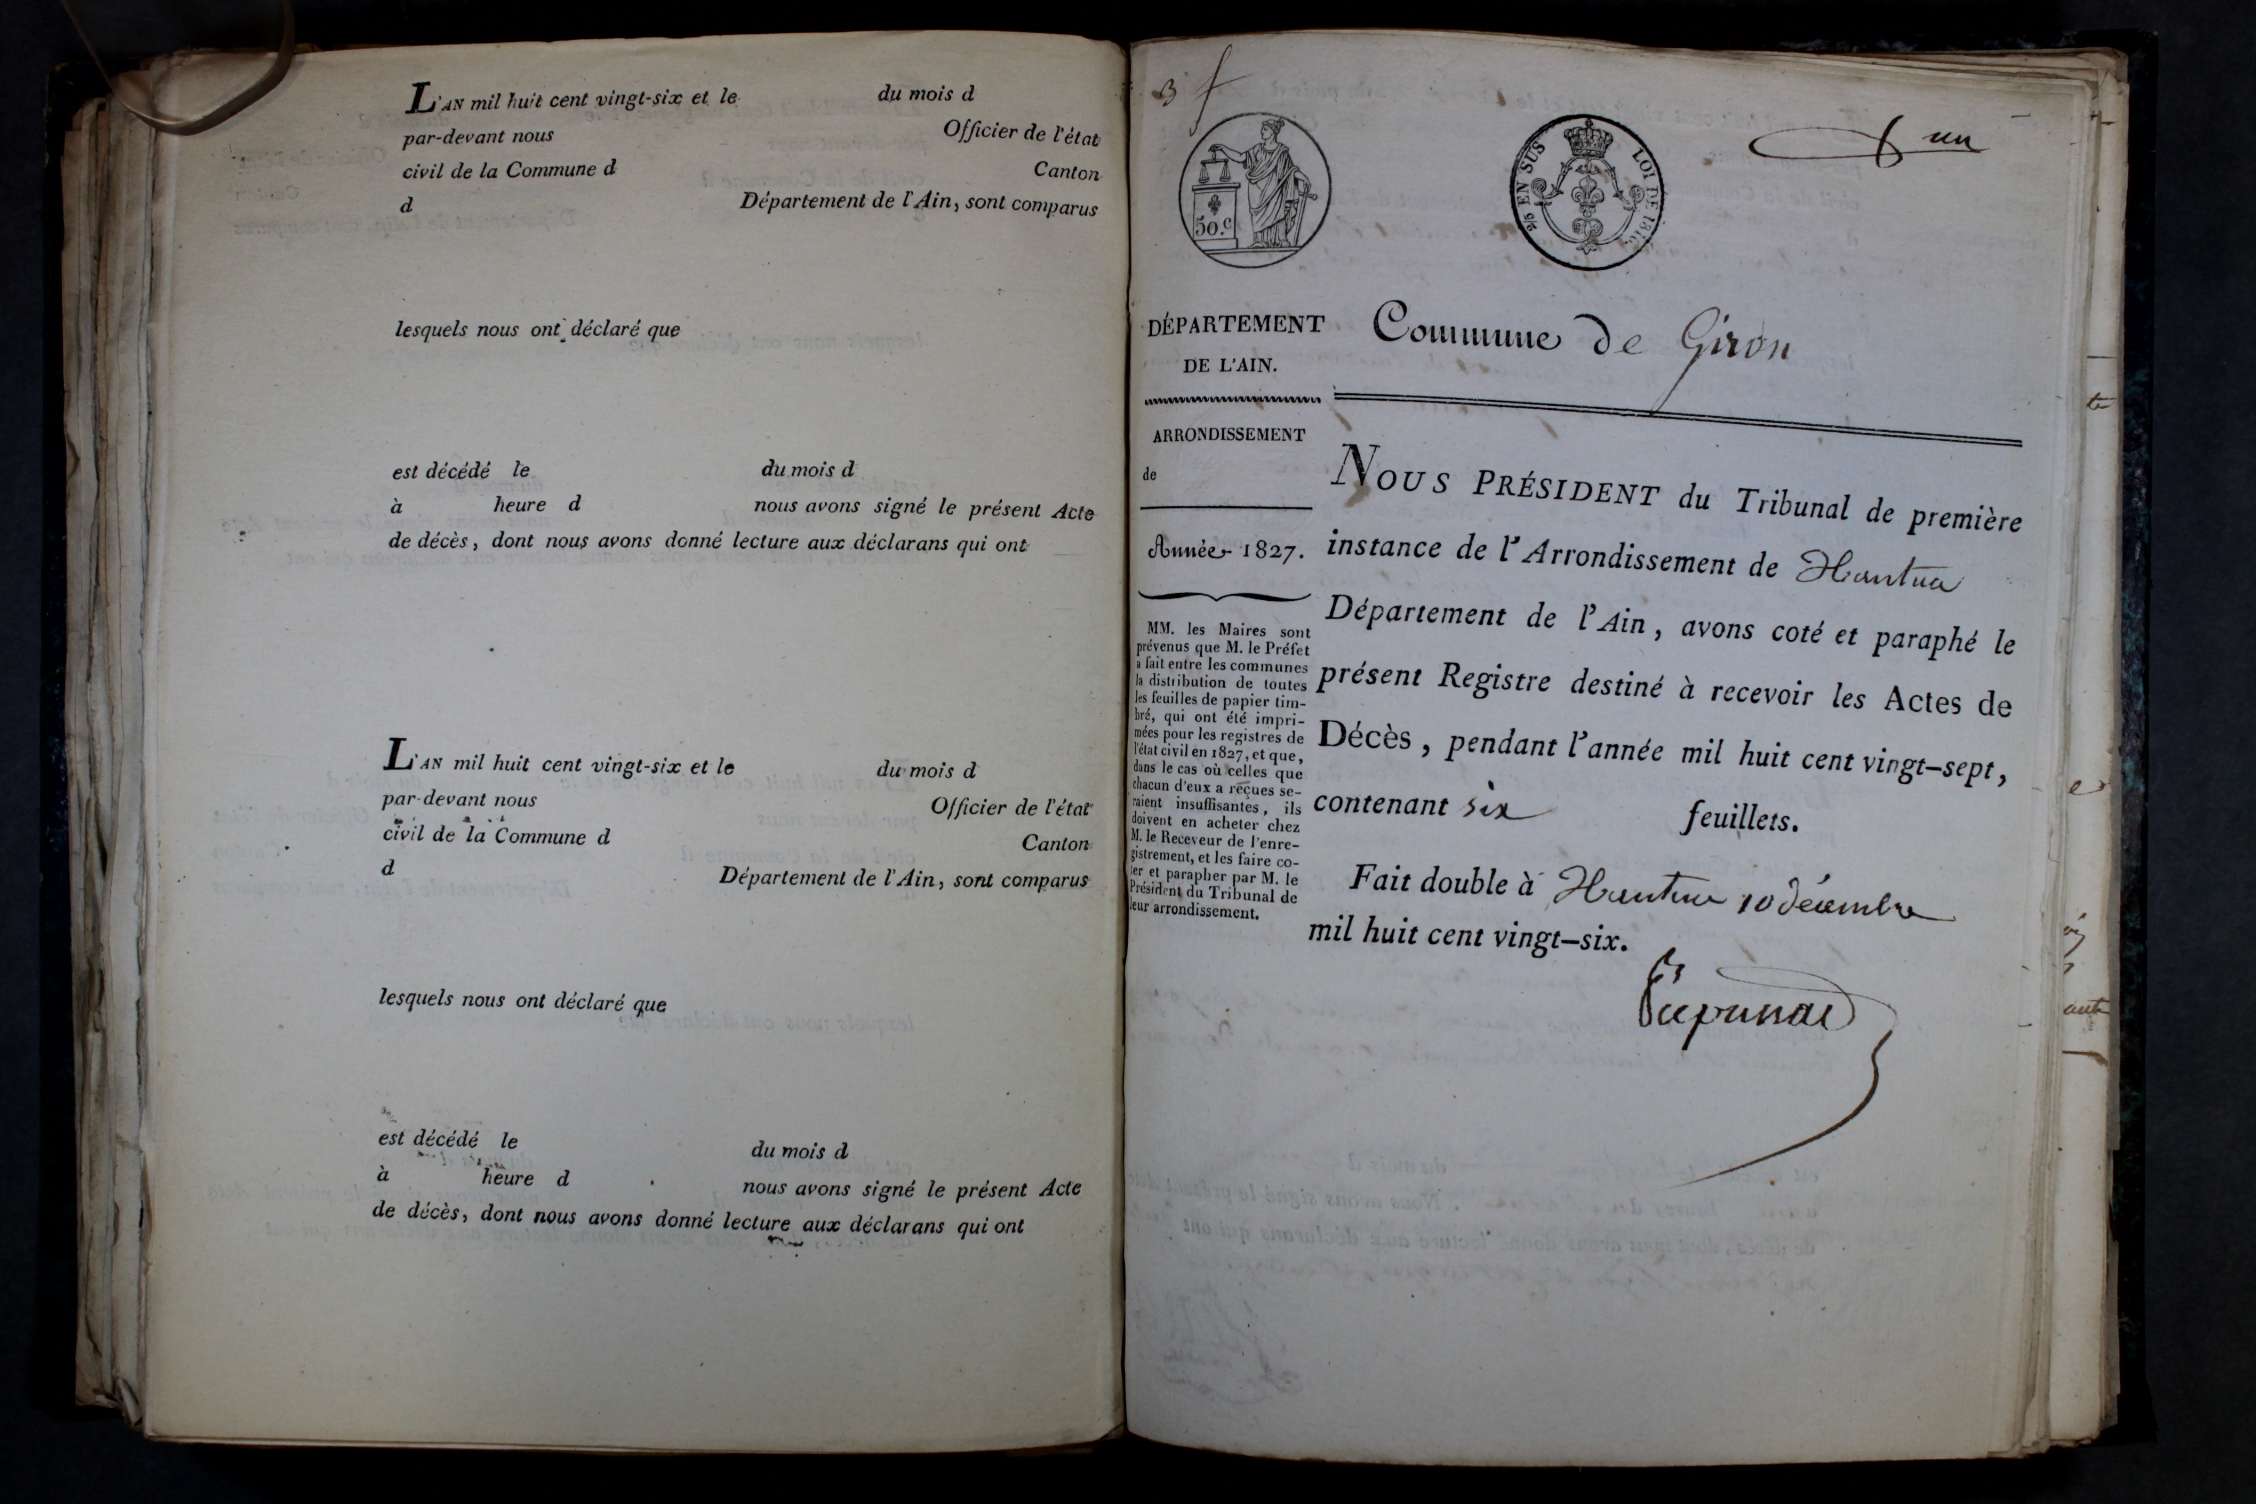 L'AN mil huit cent vingt-six et le du mois d
par-devant nous Officier de l'état
civil de la Commune d Canton
d Département de l'Ain, sont comparus
lesquels nous ont déclaré que
est décédé le du mois d
à heure d nous avons signé le présent Acte
de décès, dont nous avons donné lecture aux déclarans qui ont
L'AN mil huit cent vingt-six et le du mois d
par-devant nous Officier de l'état
civil de la Commune d Canton
d Département de l'Ain, sont comparus
lesquels nous ont déclaré que
est décédé le du mois d
à heure d nous avons signé le présent Acte
de décès, dont nous avons donné lecture aux déclarans qui ont
3 f
un
50.c
2/5 EN SUS LOI DE 1816.
DÉPARTEMENT
DE L'AIN.
ARRONDISSEMENT
de
Année 1827.
MM. les Maires sont
prévenus que M. le Préfet
a fait entre les communes
la distribution de toutes
les feuilles de papier tim-
bré, qui ont été impri-
mées pour les registres de
l'état civil en 1827, et que,
dans le cas où celles que
chacun d'eux a reçues se-
raient insuffisantes, ils
doivent en acheter chez
M. le Receveur de l'enre-
gistrement, et les faire co-
ter et parapher par M. le
Président du Tribunal de
leur arrondissement.
Commune de Giron
NOUS PRÉSIDENT du Tribunal de première
instance de l'Arrondissement de Nantua
Département de l'Ain, avons coté et paraphé le
présent Registre destiné à recevoir les Actes de
Décès, pendant l'année mil huit cent vingt-sept,
contenant six feuillets.
Fait double à Nantua 10 décembre
mil huit cent vingt-six.